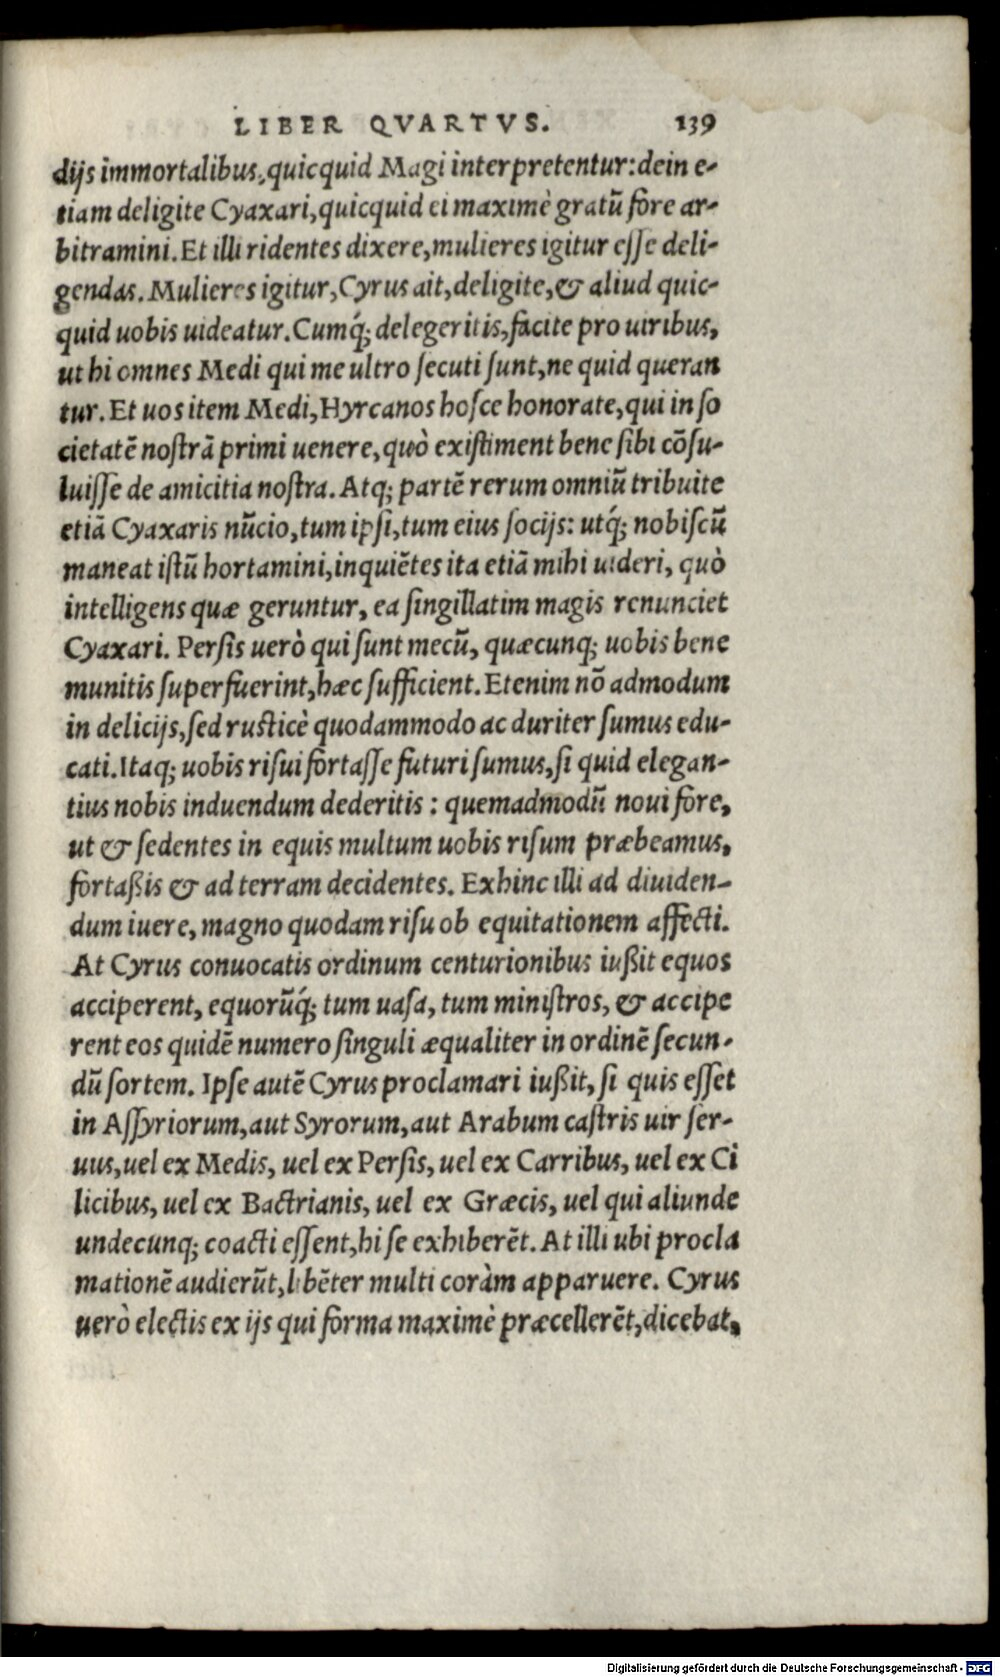 LIBER QVARTVS. 139
dijs immortalibus, quicquid Magi interpretentur: dein e-
tiam deligite Cyaxari, quicquid ei maximè gratũ fore ar-
bitramini. Et illi ridentes dixere, mulieres igitur eſſe deli-
gendas. Mulieres igitur, Cyrus ait, deligite, & aliud quic-
quid uobis uideatur. Cumq́; delegeritis, facite pro uiribus,
ut hi omnes Medi qui me ultro ſecuti ſunt, ne quid queran
tur. Et uos item Medi, Hyrcanos hoſce honorate, qui in ſo
cietatẽ noſtrã primi uenere, quò exiſtiment bene ſibi cõſu-
luiſſe de amicitia noſtra. Atq; partẽ rerum omniũ tribuite
etiã Cyaxaris nũcio, tum ipſi, tum eius ſocijs: utq́; nobiſcũ
maneat iſtũ hortamini, inquiẽtes ita etiã mihi uideri, quò
intelligens quæ geruntur, ea ſingillatim magis renunciet
Cyaxari. Perſis uerò qui ſunt mecũ, quæcunq; uobis bene
munitis ſuperfuerint, hæc ſufficient. Etenim nõ admodum
in delicijs, ſed ruſticè quodammodo ac duriter ſumus edu-
cati. Itaq; uobis riſui fortaſſe futuri ſumus, ſi quid elegan-
tius nobis induendum dederitis: quemadmodũ noui fore,
ut & ſedentes in equis multum uobis riſum præbeamus,
fortaßis & ad terram decidentes. Exhinc illi ad diuiden-
dum iuere, magno quodam riſu ob equitationem affecti.
At Cyrus conuocatis ordinum centurionibus iußit equos
acciperent, equorũq́; tum uaſa, tum miniſtros, & accipe
rent eos quidẽ numero ſinguli æqualiter in ordinẽ ſecun-
dũ ſortem. Ipſe autẽ Cyrus proclamari iußit, ſi quis eſſet
in Aſſyriorum, aut Syrorum, aut Arabum caſtris uir ſer-
uus, uel ex Medis, uel ex Perſis, uel ex Carribus, uel ex Ci
licibus, uel ex Bactrianis, uel ex Græcis, uel qui aliunde
undecunq; coacti eſſent, hi ſe exhiberẽt. At illi ubi procla
mationẽ audierũt, libẽter multi coràm apparuere. Cyrus
uerò electis ex ijs qui forma maximè præcellerẽt, dicebat,
Digitalisierung gefördert durch die Deutsche Forschungsgemeinschaft - DFG